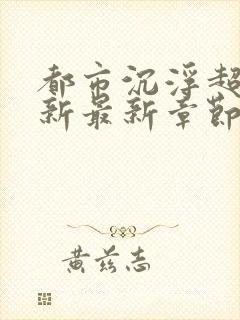 都市沉浮超
新最新章節
黄兹志